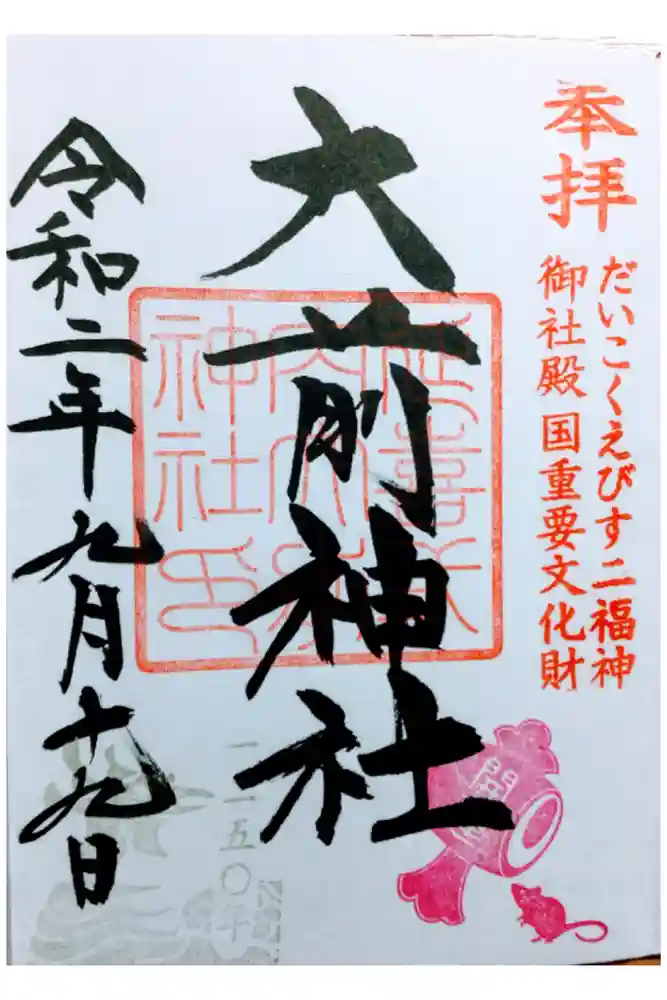 奉拝
だいこくえびす二福神
御社殿 国重要文化財
大前神社
延喜式
内大前
神社印
令和二年九月十九日
一二五〇年